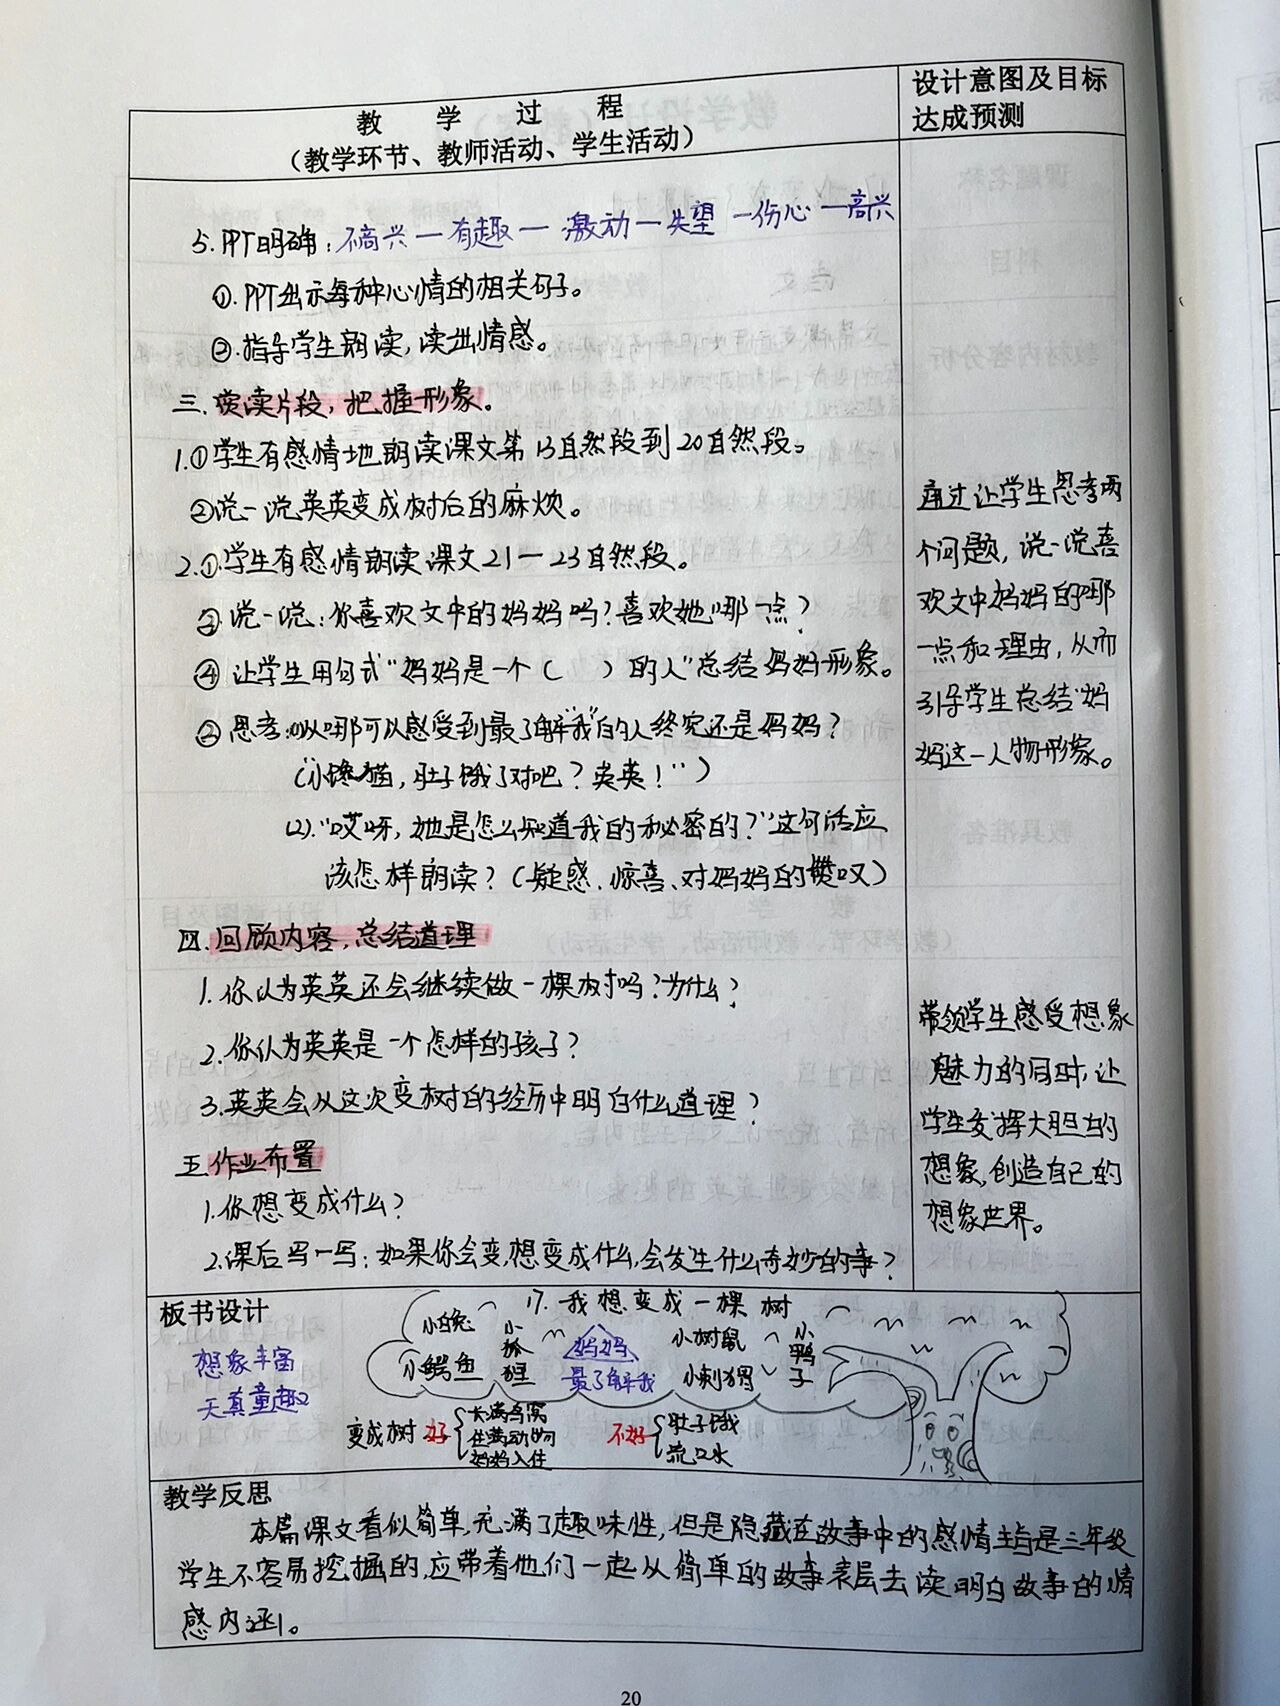 教 学 过 程
（教学环节、教师活动、学生活动）
设计意图及目标
达成预测
5.PPT明确：不高兴—有趣—激动—失望—伤心—高兴
①.PPT出示每种心情的相关句子。
②.指导学生朗读,读出情感。
三.赏读片段,把握形象。
1.①学生有感情地朗读课文第13自然段到20自然段。
②说一说英英变成树后的麻烦。
2.①学生有感情朗读课文21—23自然段。
②说一说:你喜欢文中的妈妈吗?喜欢她哪一点?
④让学生用句式“妈妈是一个（ ）的人”总结妈妈形象。
③思考:(1)从哪可以感受到最了解“我”的人终究还是妈妈?
(“小馋猫,肚子饿了对吧?英英!”)
(2).“哎呀,她是怎么知道我的秘密的?”这句话应
该怎样朗读?(疑惑、惊喜、对妈妈的赞叹)
四.回顾内容,总结道理
1.你认为英英还会继续做一棵树吗?为什么?
2.你认为英英是一个怎样的孩子?
3.英英会从这次变树的经历中明白什么道理?
五.作业布置
1.你想变成什么?
2.课后写一写:如果你会变,想变成什么,会发生什么奇妙的事?
通过让学生思考两
个问题,说一说喜
欢文中妈妈的哪
一点和理由,从而
引导学生总结“妈
妈这一人物形象。
带领学生感受想象
魅力的同时,让
学生发挥大胆的
想象,创造自己的
想象世界。
板书设计
想象丰富
天真童趣
17.我想变成一棵树
小白兔
小鳄鱼
小狐狸
妈妈
最了解我
小树鼠
小刺猬
小鸭子
变成树 好
长满鸟窝
住满动物
妈妈入住
不好
肚子饿
流口水
教学反思
本篇课文看似简单,充满了趣味性,但是隐藏在故事中的感情主旨是三年级
学生不容易挖掘的,应带着他们一起从简单的故事表层去读明白故事的情
感内涵。
20